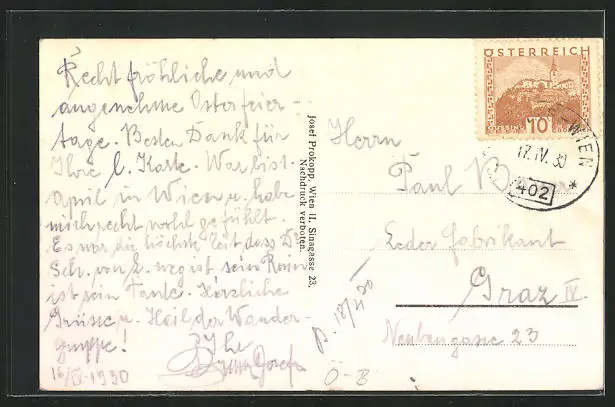 Recht fröhliche und
angenehme Osterfeier-
tage. Besten Dank für
Ihre l. Karte. War bis 1.
April in Wien u. habe
mich recht wohl gefühlt.
Es war die höchste Zeit dass Dr
Sch. von L. weg ist sein Ruin
ist sein Tante. Herzliche
Grüsse u. Heil der Wander-
gruppe!
Ihr
Josef
16/IV. 1930
Josef Prokopp, Wien II. Sinagasse 23.
Nachdruck verboten.
ÖSTERREICH
GÜSSING 10 GROSCHEN
WIEN
17.IV.30
402
*
Herrn
Paul
Lederfabrikant
Graz IV
Neubaugasse 23
p. 18/4 30
Ö-B